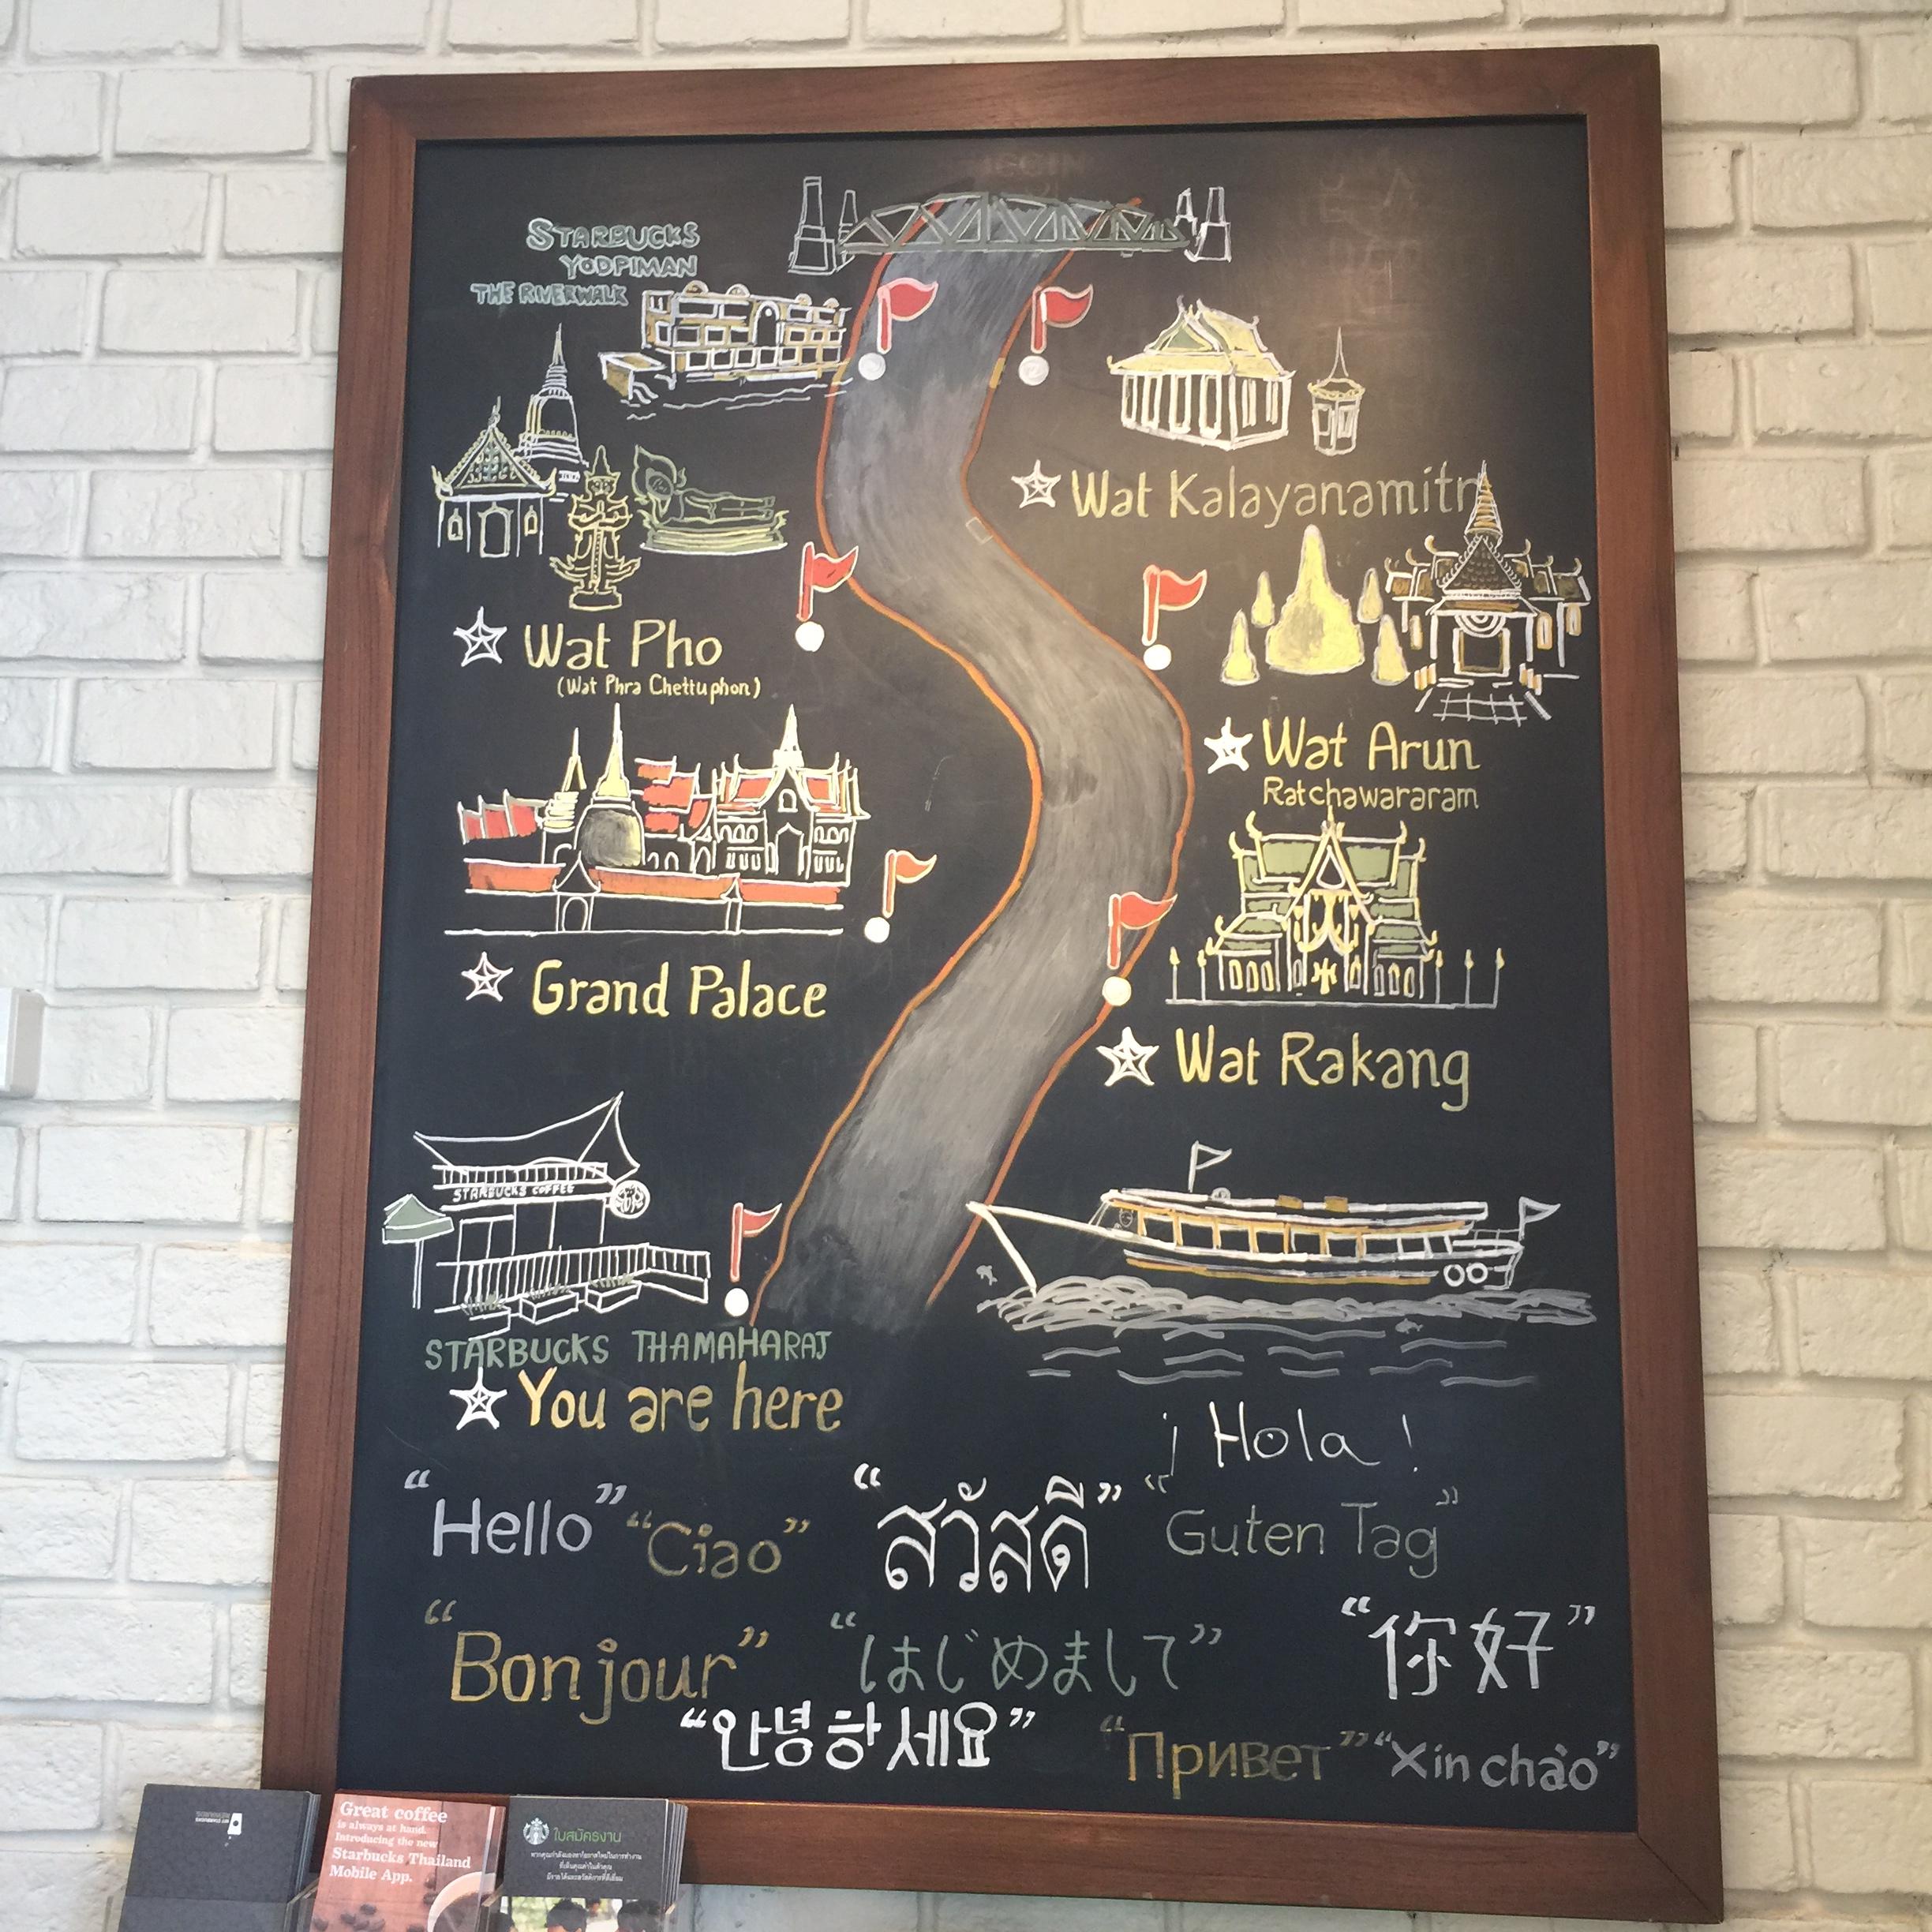 STARBUCKS
YODPIMAN
THE RIVERWALK
Wat Kalayanamitr
Wat Pho
(Wat Phra Chettuphon)
Wat Arun
Ratchawararam
Grand Palace
Wat Rakang
STARBUCKS COFFEE
STARBUCKS THAMAHARAJ
You are here
¡Hola!
“Hello” “Ciao” “สวัสดี” “Guten Tag”
“Bonjour” “はじめまして” “你好”
“안녕하세요” “Привет” “Xin chào”
Great coffee
is always at hand.
Introducing the new
Starbucks Thailand
Mobile App.
ใบสมัครงาน